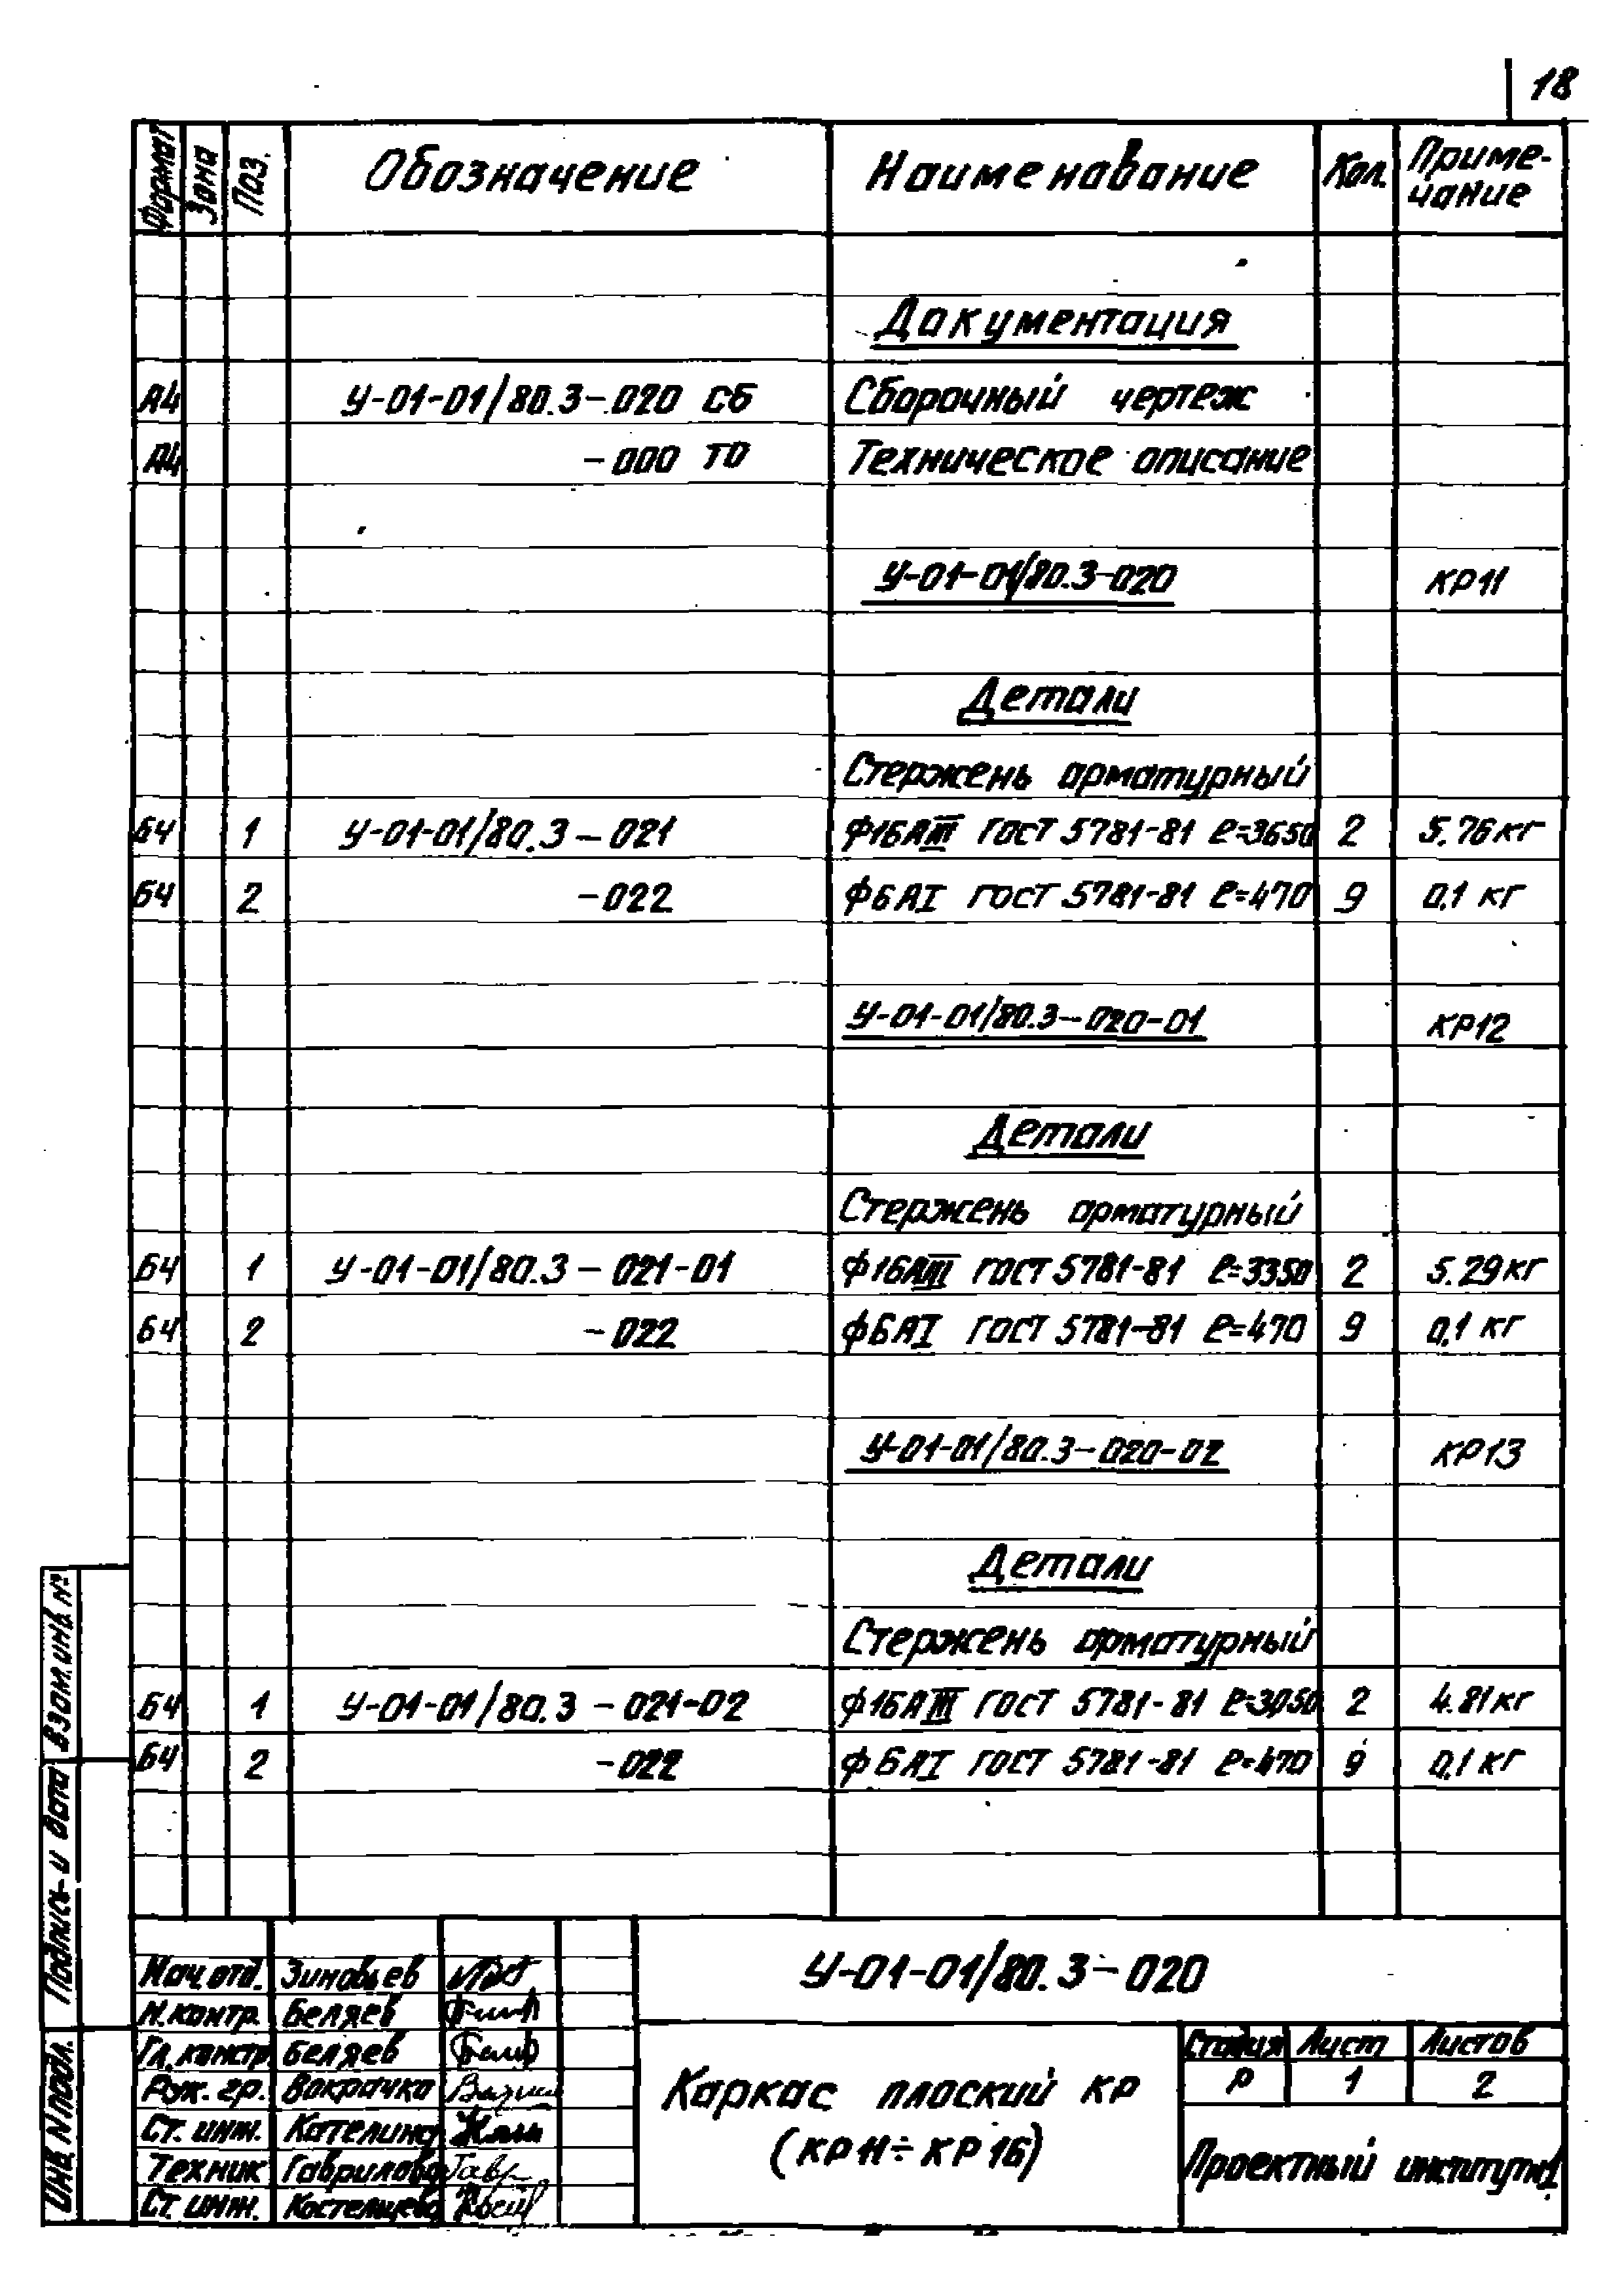 18
Формат Зона Поз. Обозначение Наименование Кол. Приме-
чание
Документация
А4 У-01-01/80.3-020 СБ Сборочный чертеж
А4 -000 ТО Техническое описание
У-01-01/80.3-020 КР11
Детали
Стержень арматурный
БЧ 1 У-01-01/80.3-021 Ф16АIII ГОСТ 5781-81 ℓ=3650 2 5.76 кг
БЧ 2 -022 Ф6АI ГОСТ 5781-81 ℓ=470 9 0,1 кг
У-01-01/80.3-020-01 КР12
Детали
Стержень арматурный
БЧ 1 У-01-01/80.3-021-01 Ф16АIII ГОСТ 5781-81 ℓ=3350 2 5.29 кг
БЧ 2 -022 Ф6АI ГОСТ 5781-81 ℓ=470 9 0,1 кг
У-01-01/80.3-020-02 КР13
Детали
Стержень арматурный
БЧ 1 У-01-01/80.3-021-02 Ф16АIII ГОСТ 5781-81 ℓ=3050 2 4.81 кг
БЧ 2 -022 Ф6АI ГОСТ 5781-81 ℓ=470 9 0,1 кг
Взам.инв.№
Подпись и дата
Инв. N подл.
Нач.отд. Зиновьев
Н.контр. Беляев
Гл.констр. Беляев
Рук. гр. Вокрачко
Ст. инж. Кателина
Техник Гаврилова
Ст. инж. Костельцева
У-01-01/80.3-020
Каркас плоский КР
(КР11÷КР16)
Стадия Лист Листов
Р 1 2
Проектный институт 1